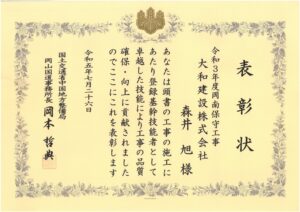 表彰状
令和3年度岡南保守工事
大和建設株式会社
森井 旭様
あなたは頭書の工事の施工に
あたり登録基幹技能者として
卓越した技能により工事の品質
確保・向上に貢献されました
のでここにこれを表彰します
令和五年七月二十六日
国土交通省中国地方整備局
岡山国道事務所長 岡本哲典